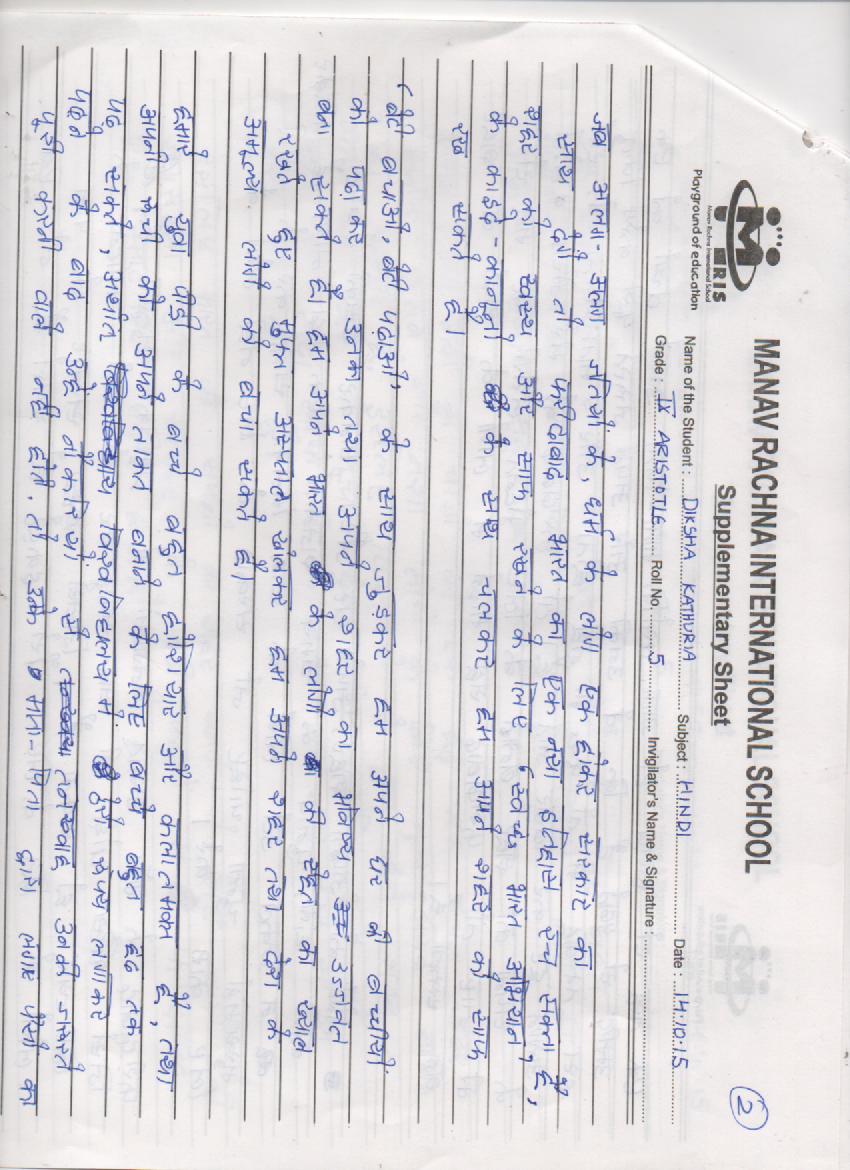 MANAV RACHNA INTERNATIONAL SCHOOL
Supplementary Sheet
2
MRIS
Manav Rachna International School
Playground of education
Name of the Student : DIKSHA KATHURIA Subject : HINDI Date : 14.10.15
Grade : IX ARISTOTLE Roll No. 5 Invigilator's Name & Signature :
जब अलग-अलग जातियों के, धर्म के लोग एक होकर सरकार का
साथ दें तो फरीदाबाद भारत का एक नया इतिहास रच सकता है,
शहर को स्वस्थ और साफ रखने के लिए 'स्वच्छ भारत अभियान',
के काइदे-कानूनों के साथ चलकर हम अपने शहर को साफ
रख सकते है।
'बेटी बचाओ, बेटी पढ़ाओ' के साथ जुड़कर हम अपने घर की बच्चीयों
को पढ़ाकर उनका तथा अपने शहर का भविष्य उज्जवल
बना सकते है। हम अपने भारत के लोगों की सेहत का ख्याल
रखते हुए मुफ्त अस्पताल खोलकर हम अपने शहर तथा देश के
अमूल्य लोगों को बचा सकते है।
हमारे युवा पीड़ी के बच्चे बहुत होशियार और कलात्मक है, तथा
अपनी रूची को अपनी ताकत बनाने के लिए बच्चे बहुत हद तक
पढ़ सकते, अर्थात विश्वविद्यालय में पैसा लगाकर
पढ़ने के बाद उन्हें नौकरियों से तनख्वाह उनकी जरूरते
पूरी करने वाले नही होते, तो उनके माता-पिता द्वारा लगाए पैसों का